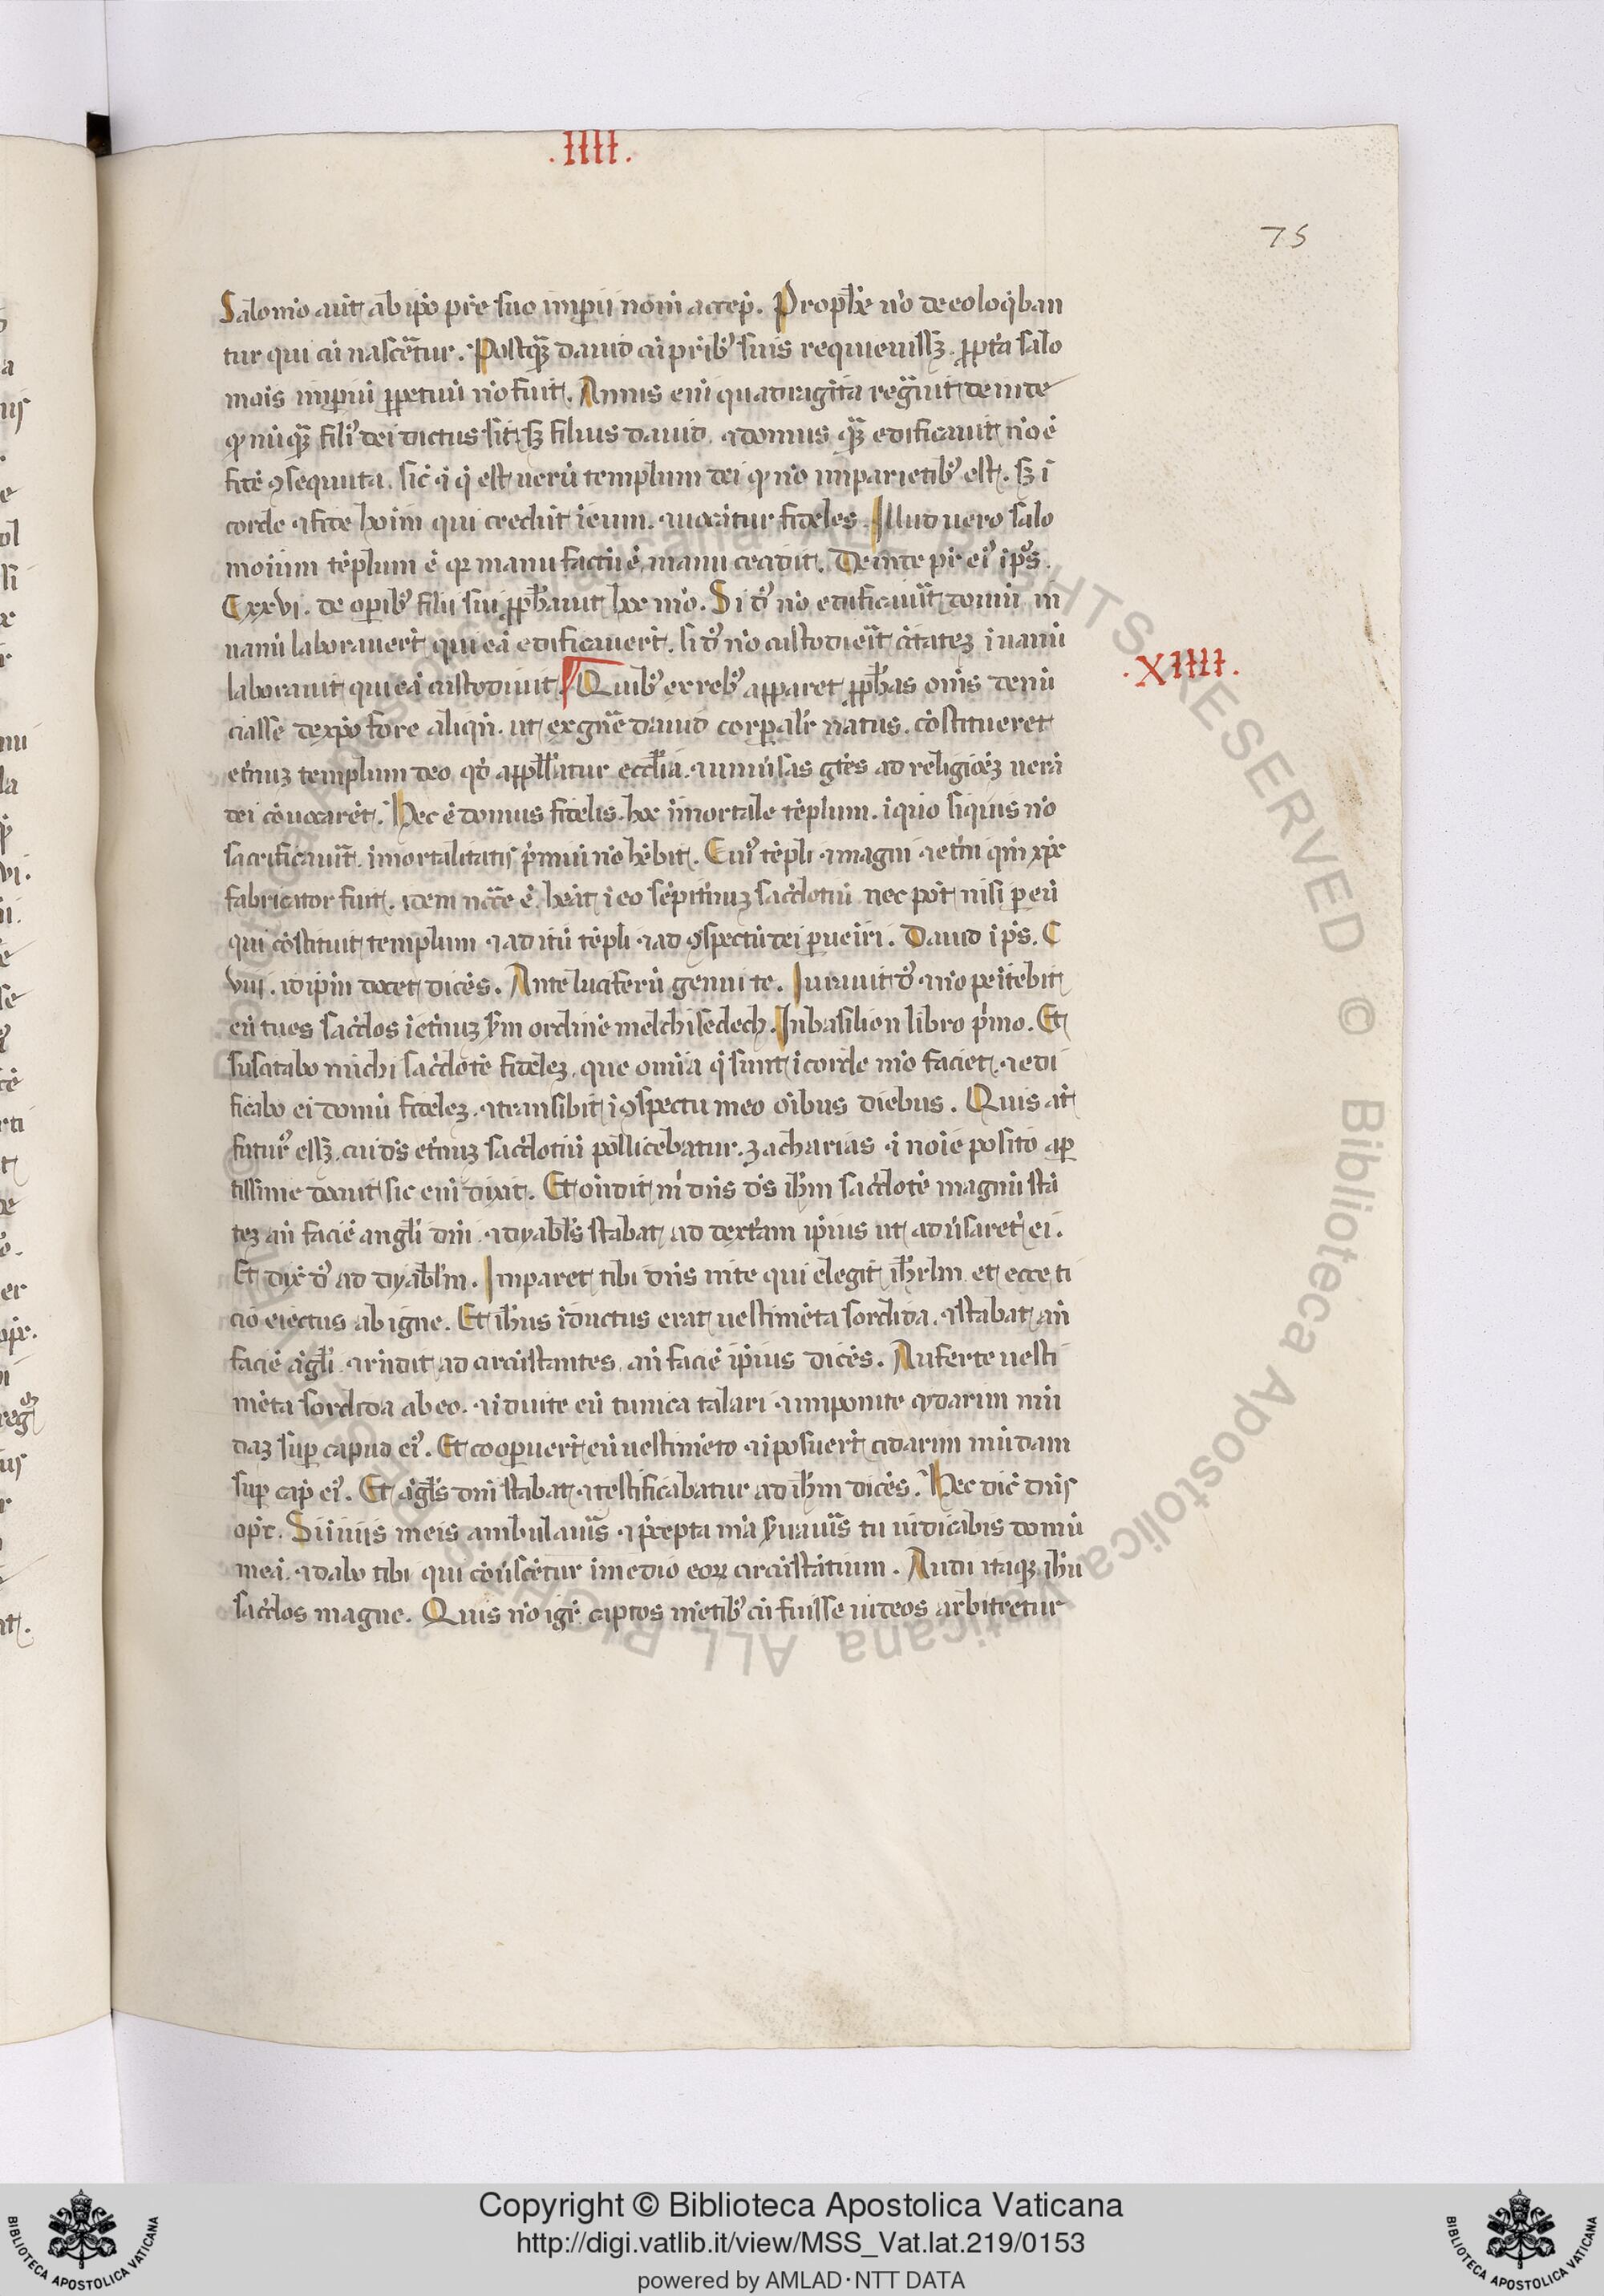 .IIII.
75
Salomō aut̄ ab ip̄o pr̄e suo imp̄ii nom̄ accep̄. Proph̄e nō de eo loq̄ban
tur qui cū nascēt̄ur. Postq̄ꝫ dauid cū p̄rib᷒ suis requieuissꝫ. ꝓpt̄a salo
mōis imp̄iū ꝑpetuū nō fuit. Annis eni quadragīta regn̄uit deinde
ꝙ nūq̄ꝫ fili᷒ dei dictus sit sꝫ filius dauid. ⁊ domus q̄ꝫ edificauit nō ē
fidē ꝯsequuta. sic̄ ī q̄ est uerū templum dei ꝙ nō in parietib᷒ est. sꝫ ī
corde ⁊ fide hoīm qui credūt ī eum. ⁊ uocāntur fideles. Illud uero salo
moīum tēplum ē qꝛ manu factū ē, manu cecidit. Deinde pr̄ ei᷒ ī ps̄.
Cxxvi. de oꝑib᷒ filii sui ꝓph̄auit hoc mō. Si d᷒ nō edificauīt domū in
uanū laborauer̄t qui eā edificauer̄t. si d᷒ nō custodieīt c̄itateꝫ ī uanū
laborauit qui eā custodiuit. ¶ Quib᷒ ex reb᷒ apparet ꝓph̄as om̄s denū
.XIIII.
ciasse de xp̄o fore aliqn̄. ut ex gn̄e dauid corp̄alr̄ natus. cōstitueret
et̄nuꝫ templum deo qd̄ appll̄atur eccl̄ia. ⁊ uniu̇sas gt̄es ad religiōeꝫ uerā
dei cōuocaret̄. Hec ē domus fidelis. hoc īmortale tēplum. ī quo siquis nō
sacrificauīt. īmortalitatis p̄miū nō hēbit. Cui᷒ tēpli ⁊ magni ⁊ et̄ni qm̄ xp̄c
fabricator fuit. idem nc̄ce ē. heāt ī eo sēpit̄nuꝫ sac̄dotiū nec pōt nisi ꝑ eū
qui cōstituit templum ⁊ ad itū tēpli ⁊ ad ꝯspectū dei ꝑueīri. Dauid ī ps̄. C
VIIII. id ip̄m docet dicēs. Ante luciferū genui te. Iurauit d᷒ ⁊ nō peītebit
eū tu es sac̄dos ī et̄nuꝫ sm̄ ordinē melchisedech. In basilion libro p̄mo. Et
suscitabo michi sac̄dotē fideleꝫ. que omīa q̄ sunt ī corde mō faciet ⁊ edi
ficabo ei domū fideleꝫ. ⁊ transibit ī ꝯspectu meo oībus diebus. Quis at̄
futur᷒ essꝫ. cui ds̄ et̄nuꝫ sac̄dotiū pollicebatur. zacharias ī noīe posito ap
tissime docuit sic enī dixit. Et on̄dit m̄ dn̄s ds̄ ih̄m sac̄dotē magnū stā
teꝫ an̄ faciē angl̄i dn̄i. ⁊ dyabl̄s stabat ad dext̄am ip̄ius ut adu̇saret̄ ei.
Et dix̄ d᷒ ad dyabl̄m. Imparet tibi dn̄s in te qui elegit ih̄rl̄m et ecce ti
cio eiectus ab igne. Et ih̄us īductus erat uestimēta sordida. ⁊ stabat an̄
faciē āgl̄i. ⁊ rn̄dit ad circūstantes. an̄ faciē ip̄ius dicēs. Auferte uesti
mēta sordida ab eo. ⁊ īduite eū tunica talari ⁊ imponite cydarim mū
daꝫ suꝑ capud ei᷒. Et cooꝑuer̄t eū uestimēto ⁊ īposuer̄t cidarim mūdam
suꝑ cap̄ ei᷒. Et āgl̄s dn̄i stabat. ⁊ testificabatur ad ih̄m dicēs. Hec dic̄ dn̄s
op̄c. Si ī uiis meis ambulau̇is ⁊ p̄cepta mā s̄uau̇is tu iudicabis domū
meā. ⁊ dabo tibi qui cōu̇scētur ī medio eoꝝ circūstātium. Audi itaqꝫ ih̄u
sac̄dos magne. Quis nō igr̄ captos mētib᷒ cū fuisse iudeos arbitretur
Copyright © Biblioteca Apostolica Vaticana
http://digi.vatlib.it/view/MSS_Vat.lat.219/0153
powered by AMLAD·NTT DATA